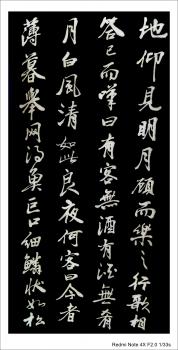 地仰見明月顧而樂之行歌相
答已而嘆曰有客無酒有酒無肴
月白風清如此良夜何客曰今者
薄暮舉网得魚巨口細鱗狀如松
Redmi Note 4X F2.0 1/33s